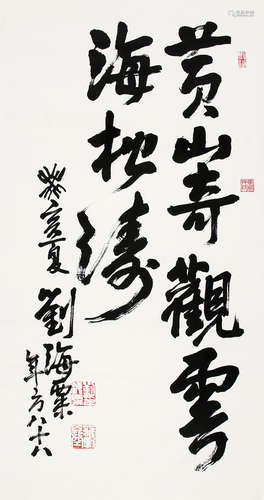 黄山奇觀雲
海松濤
癸亥夏
劉海粟
年方八十八